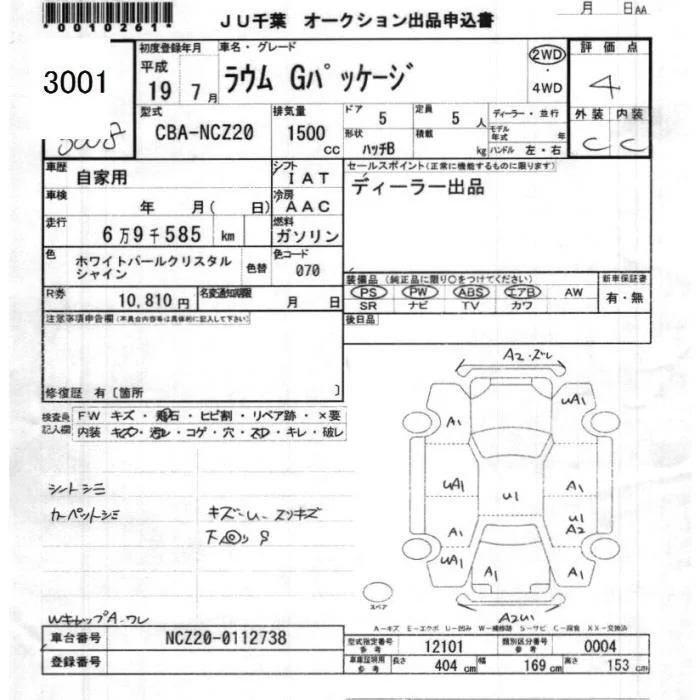 月 日AA
*0010261*
JU千葉 オークション出品申込書
3001
初度登録年月
平成
19 7月
車名・グレード
ラウム Gパッケージ
2WD
・
4WD
評価点
4
外装 内装
C C
型式
CBA-NCZ20
排気量
1500
CC
ドア 5
定員 5 人
ディーラー・並行
形状
ハッチB
積載 kg
モデル年式 年
ハンドル 左・右
車歴
自家用
シフト
IAT
セールスポイント(正常に機能するものに限ります)
ディーラー出品
車検
年 月( 日)
冷房
AAC
走行
6万9千585 km
燃料
ガソリン
色
ホワイトパールクリスタル
シャイン
色替
色コード
070
装備品(純正品に限り○をつけてください)
PS PW ABS エアB AW
SR ナビ TV カワ
新車保証書
有・無
R券
10,810円
名変通知期限
月 日
後日品
注意事項申告欄(不具合内容等は具体的に記入して下さい)
修復歴 有〔箇所 〕
検査員
記入欄
FW キズ・飛石・ヒビ割・リペア跡・×要
内装 キズ・汚レ・コゲ・穴・スレ・キレ・破レ
シートシミ
カーペットシミ
キズ-U-スリキズ
WキャップA-ワレ
A2・ズレ
A1
UA1
UA1
U1
A1
A1
U1
A2
UA1
A1
A1
A2U1
スペア
A-キズ E-エクボ U-凹み W-補修跡 S-サビ C-腐食 XX-交換済
車台番号
NCZ20-0112738
登録番号
型式指定番号
参考
12101
類別区分番号
参考
0004
車庫証明用
参考
長さ 404 cm
幅 169 cm
高さ 153 cm